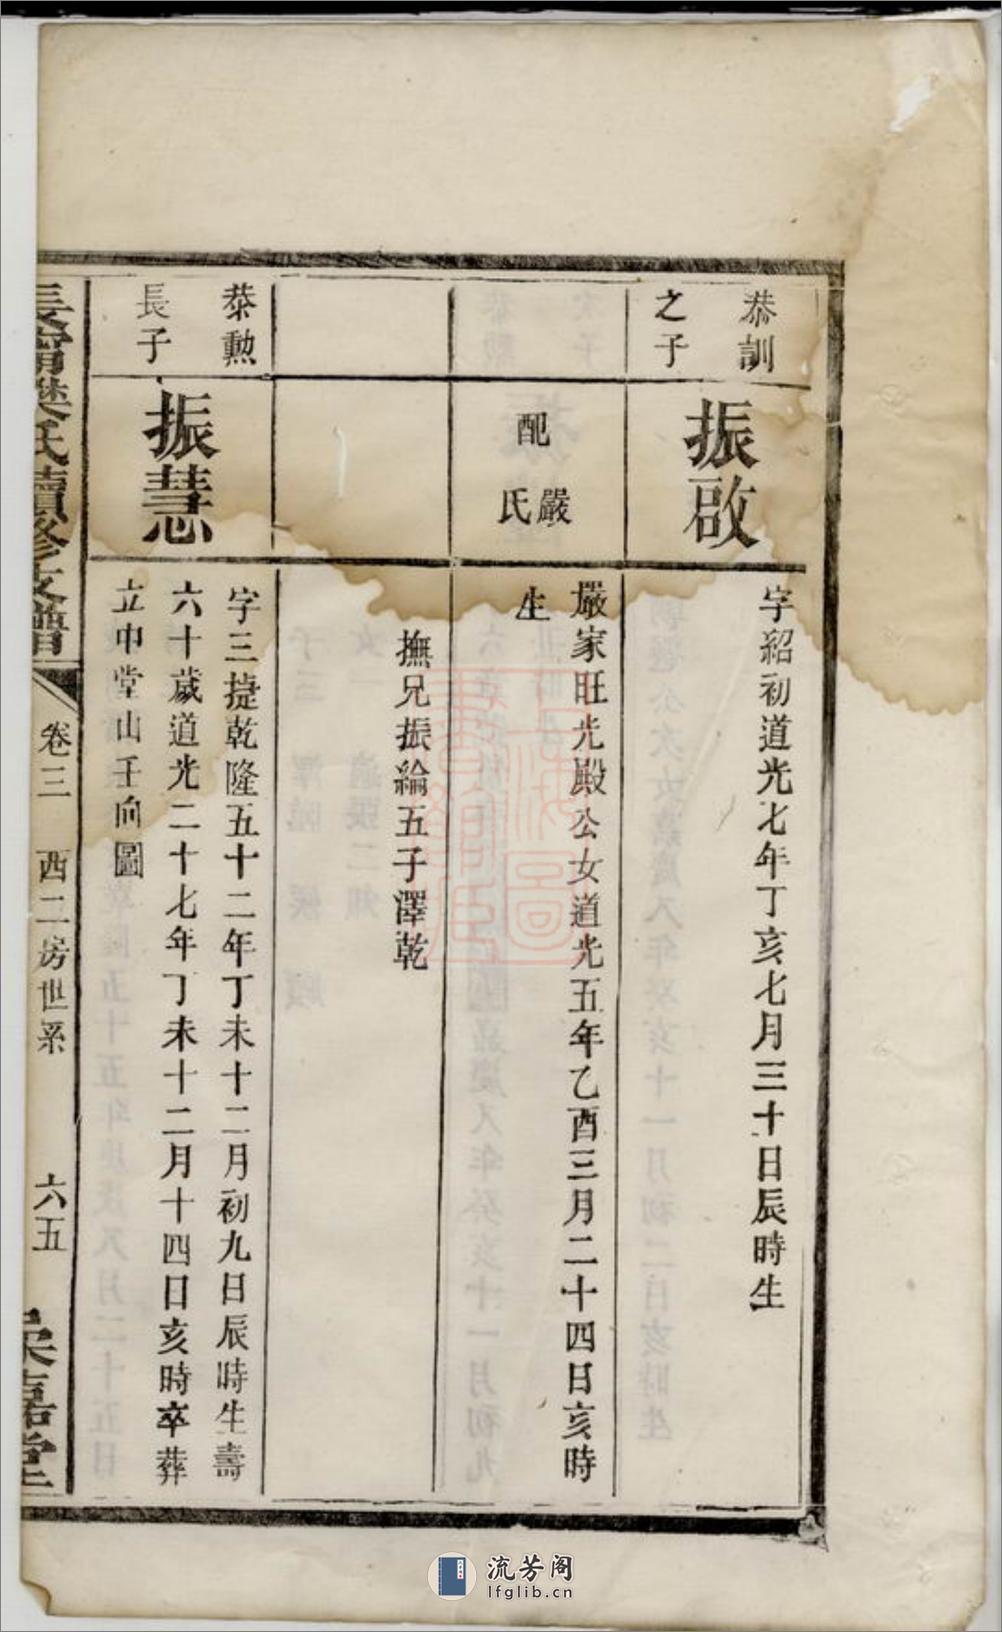 恭訓
之子
振啟
字紹初道光七年丁亥七月三十日辰時生
配嚴氏
嚴家旺光殿公女道光五年乙酉三月二十四日亥時
生
撫兄振綸五子澤乾
恭勲
長子
振慧
字三捷乾隆五十二年丁未十二月初九日辰時生壽
六十歲道光二十七年丁未十二月十四日亥時卒葬
立中堂山壬向圖
氏續修支譜
卷三
西二房世系
六五
嘉堂
流芳阁
lfglib.cn